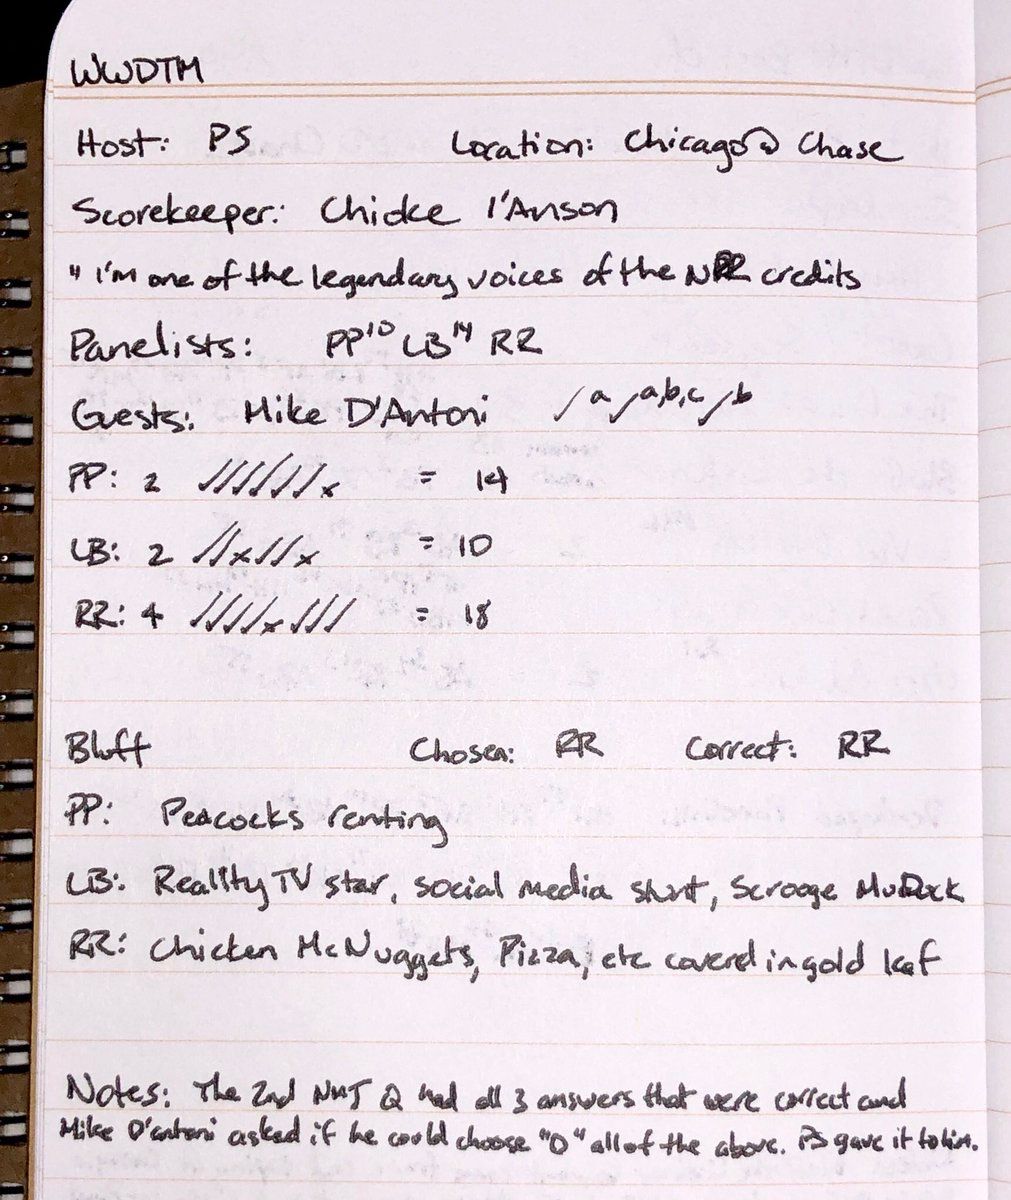 WWDTM
Host: PS Location: Chicago @ Chase
Scorekeeper: Chioke I'Anson
"I'm one of the legendary voices of the NPR credits
Panelists: PP10 LB14 RR
Guests: Mike D'Antoni ✓a ✓a,b,c ✓b
PP: 2 ✓✓✓✓✓✓x = 14
LB: 2 ✓✓x✓✓x = 10
RR: 4 ✓✓✓✓x✓✓✓ = 18
Bluff Chosen: RR Correct: RR
PP: Peacocks renting
LB: Reality TV star, social media stunt, Scrooge McDuck
RR: Chicken McNuggets, Pizza, etc covered in gold leaf
Notes: The 2nd NMJ Q had all 3 answers that were correct and
Mike D'antoni asked if he could choose "D" all of the above. PS gave it to him.